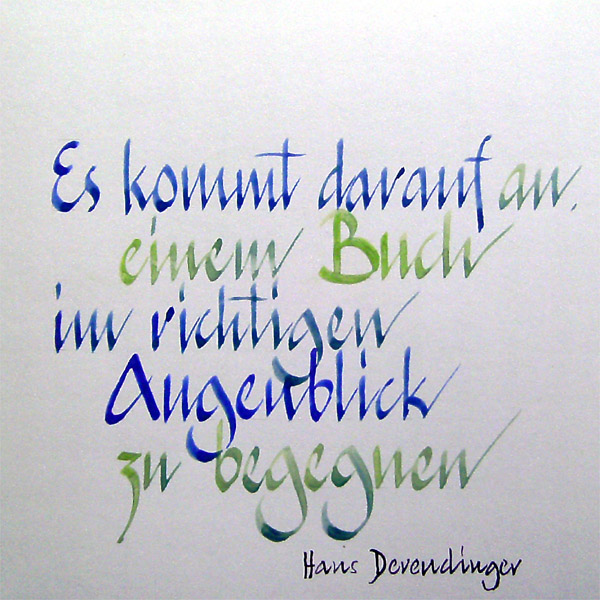 Es kommt darauf an,
einem Buch
im richtigen
Augenblick
zu begegnen
Hans Derendinger